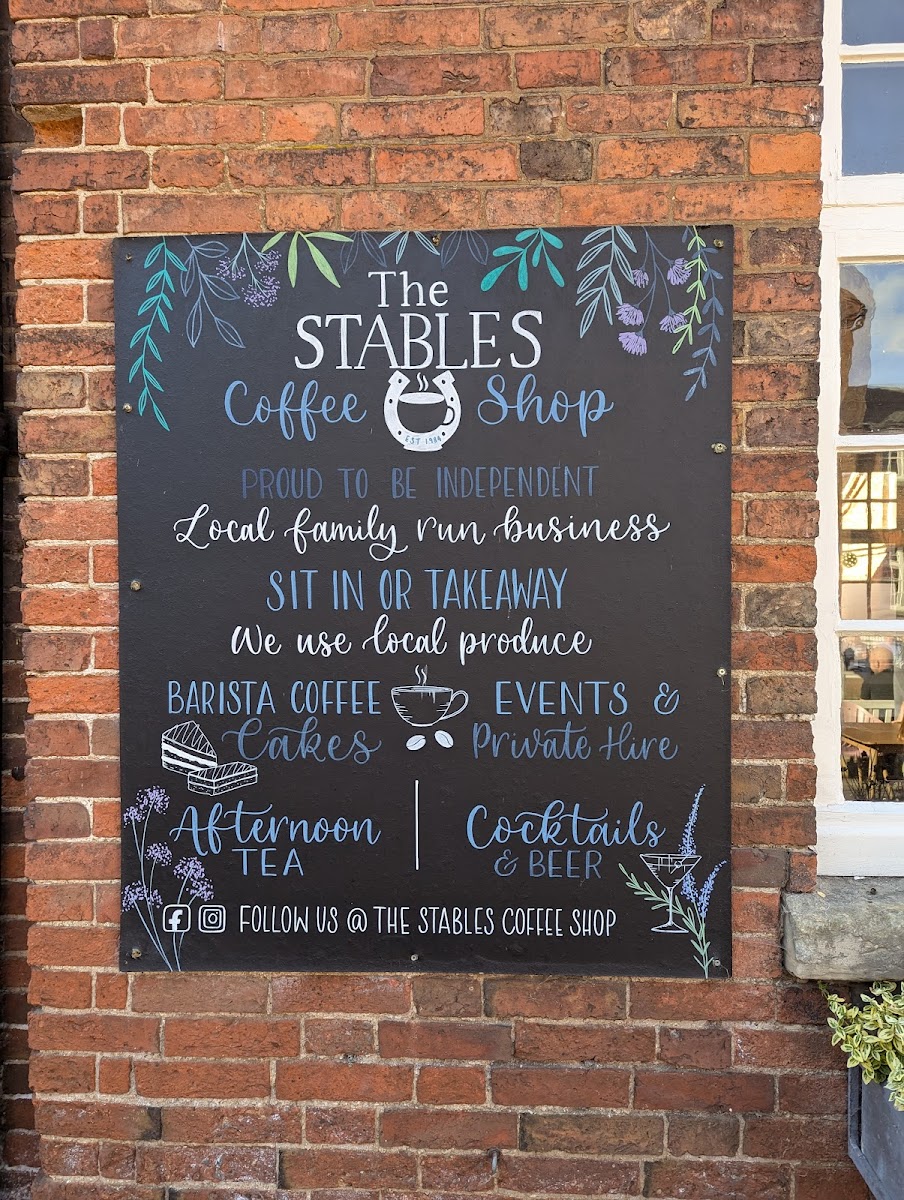 The
STABLES
Coffee Shop
EST 1984
PROUD TO BE INDEPENDENT
Local family run business
SIT IN OR TAKEAWAY
We use local produce
BARISTA COFFEE
Cakes
EVENTS &
Private Hire
Afternoon
TEA
Cocktails
& BEER
FOLLOW US @ THE STABLES COFFEE SHOP